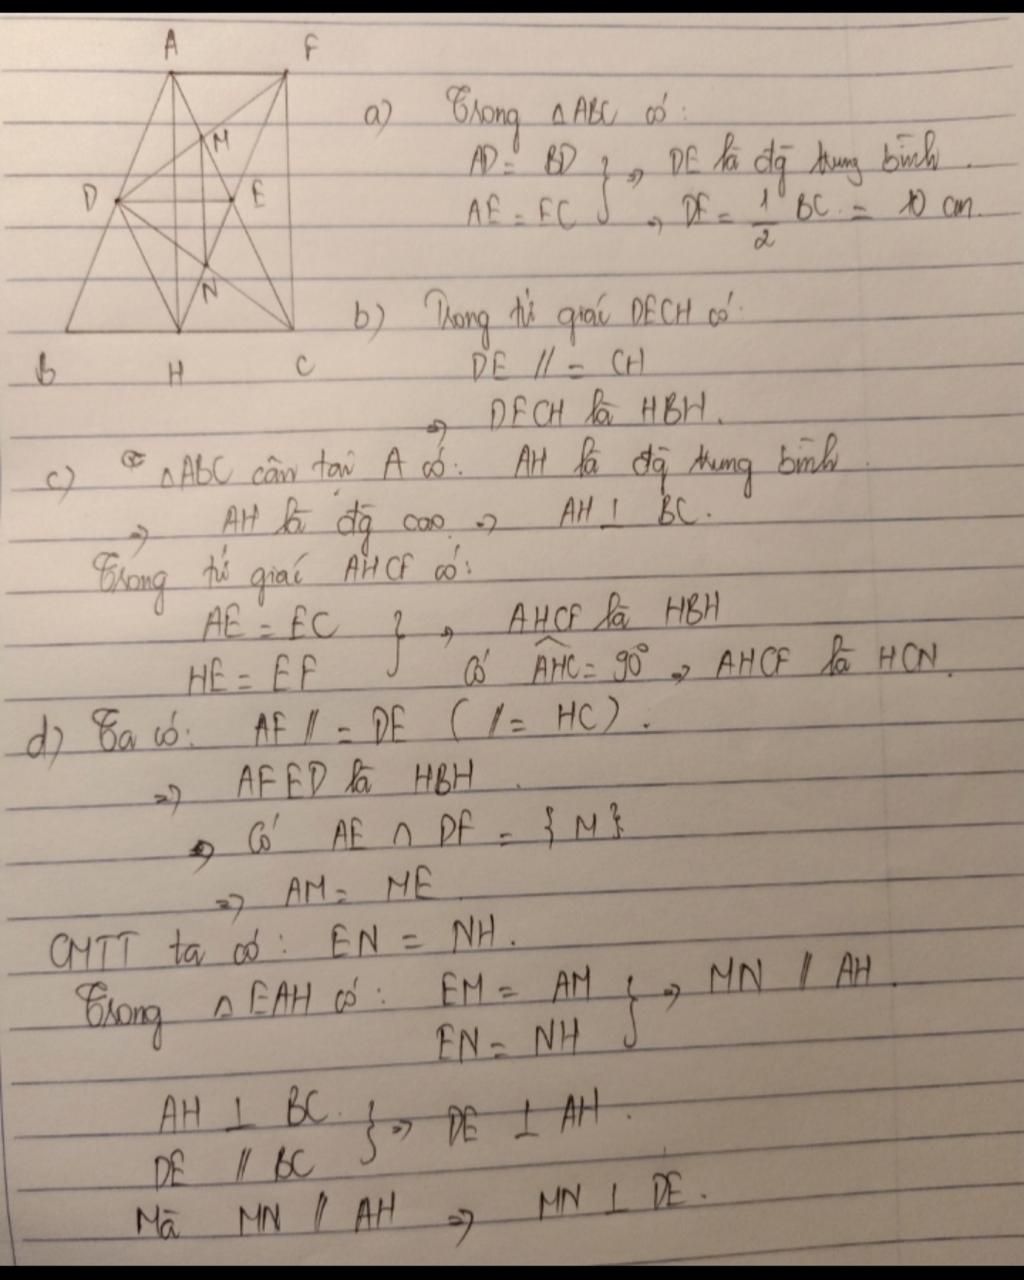 A F
M
D E
N
B H C
a) Trong △ABC có:
AD = BD
AE = EC } => DE là đg̃ trung bình.
=> DE = 1/2 BC = 10 cm.
b) Trong tứ giác DECH có:
DE // = CH
=> DECH là HBH.
c) △ABC cân tại A có: AH là đg̃ trung bình
=> AH là đg̃ cao => AH ⊥ BC.
Trong tứ giác AHCF có:
AE = EC
HE = EF } => AHCF là HBH
Có AHC = 90° => AHCF là HCN.
d) Ta có: AF // = DE ( // = HC ).
=> AFED là HBH.
=> Có AE ∩ DF = { M }
=> AM = ME
CMTT ta có: EN = NH.
Trong △EAH có: EM = AM
EN = NH } => MN // AH.
AH ⊥ BC.
DE // BC } => DE ⊥ AH.
Mà MN // AH => MN ⊥ DE.